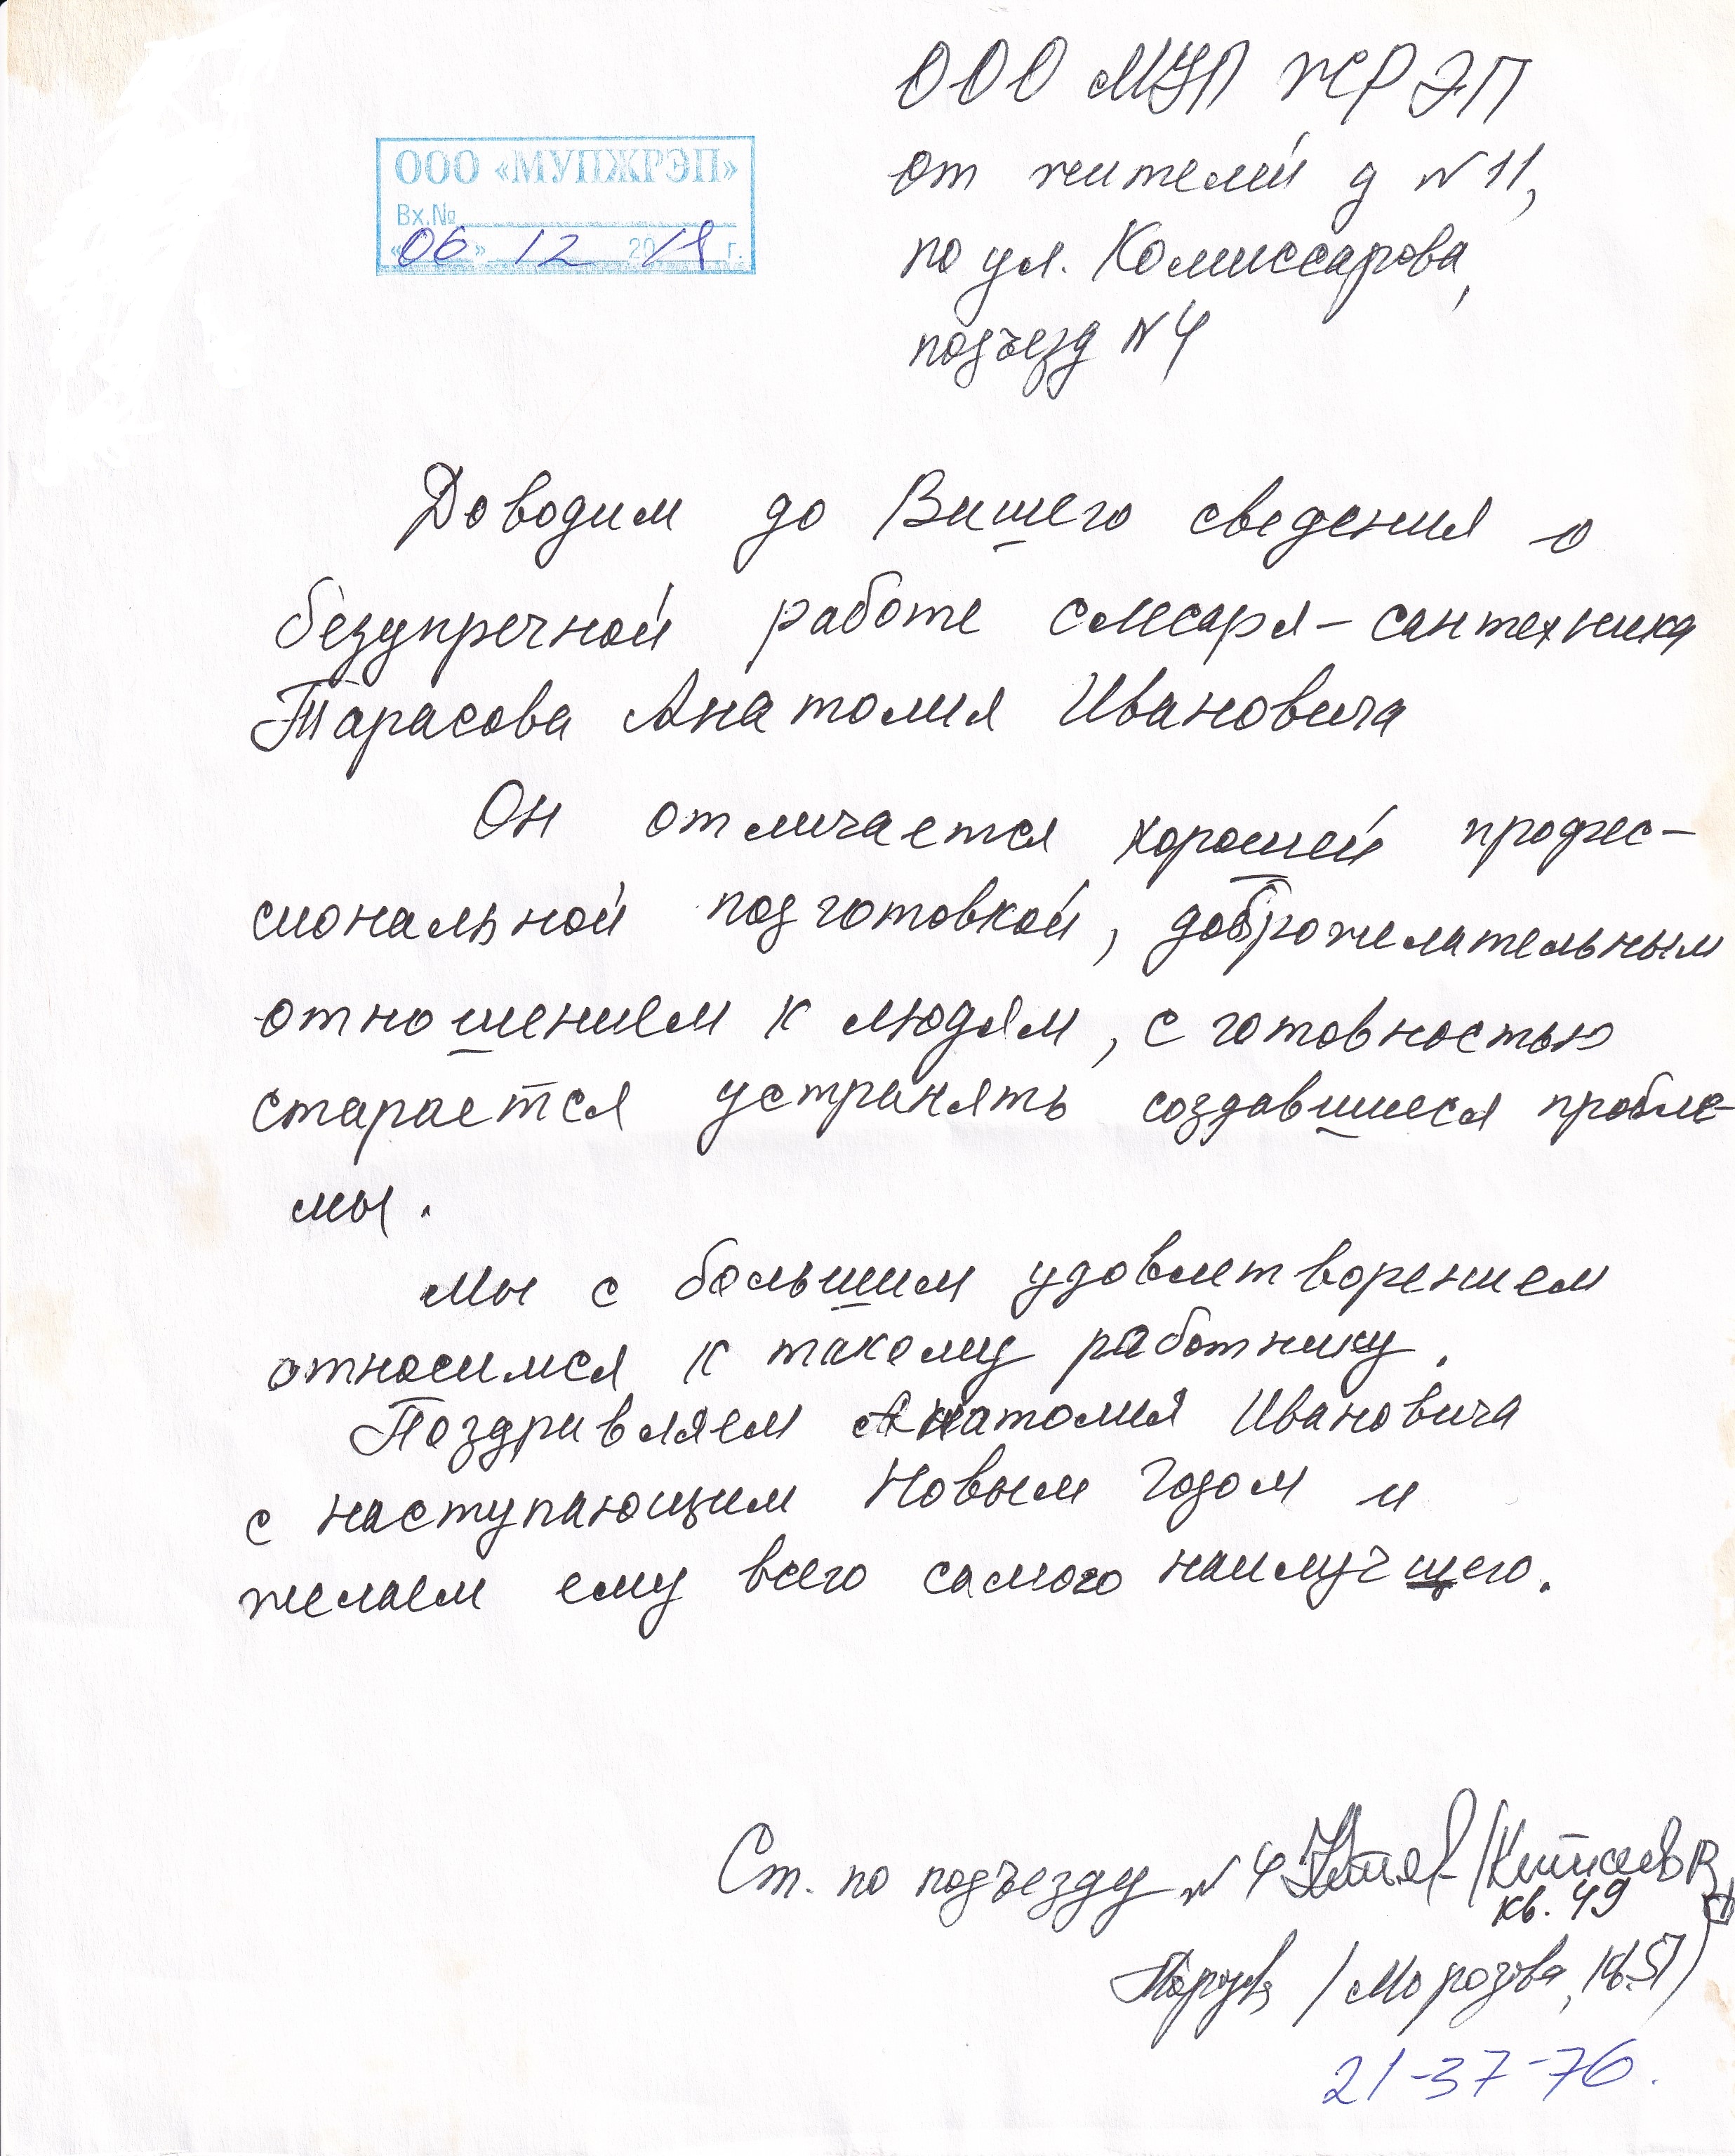 ООО МУП ЖРЭП
ООО «МУПЖРЭП»
от жителей д N 11,
Вх.№
«06» 12 20 г.
по ул. Комиссарова,
подъезд N 4
Доводим до Вашего сведения о
безупречной работе слесаря-сантехника
Тарасова Анатолия Ивановича
Он отличается хорошей профес-
сиональной подготовкой, доброжелательным
отношением к людям, с готовностью
старается устранять создавшиеся пробле-
мы.
Мы с большим удовлетворением
относимся к такому работнику.
Поздравляем Анатолия Ивановича
с наступающим Новым Годом и
желаем ему всего самого наилучщего.
Ст. по подъезду N 4
кв. 49
/Морозова, кв.51)
21-37-76.